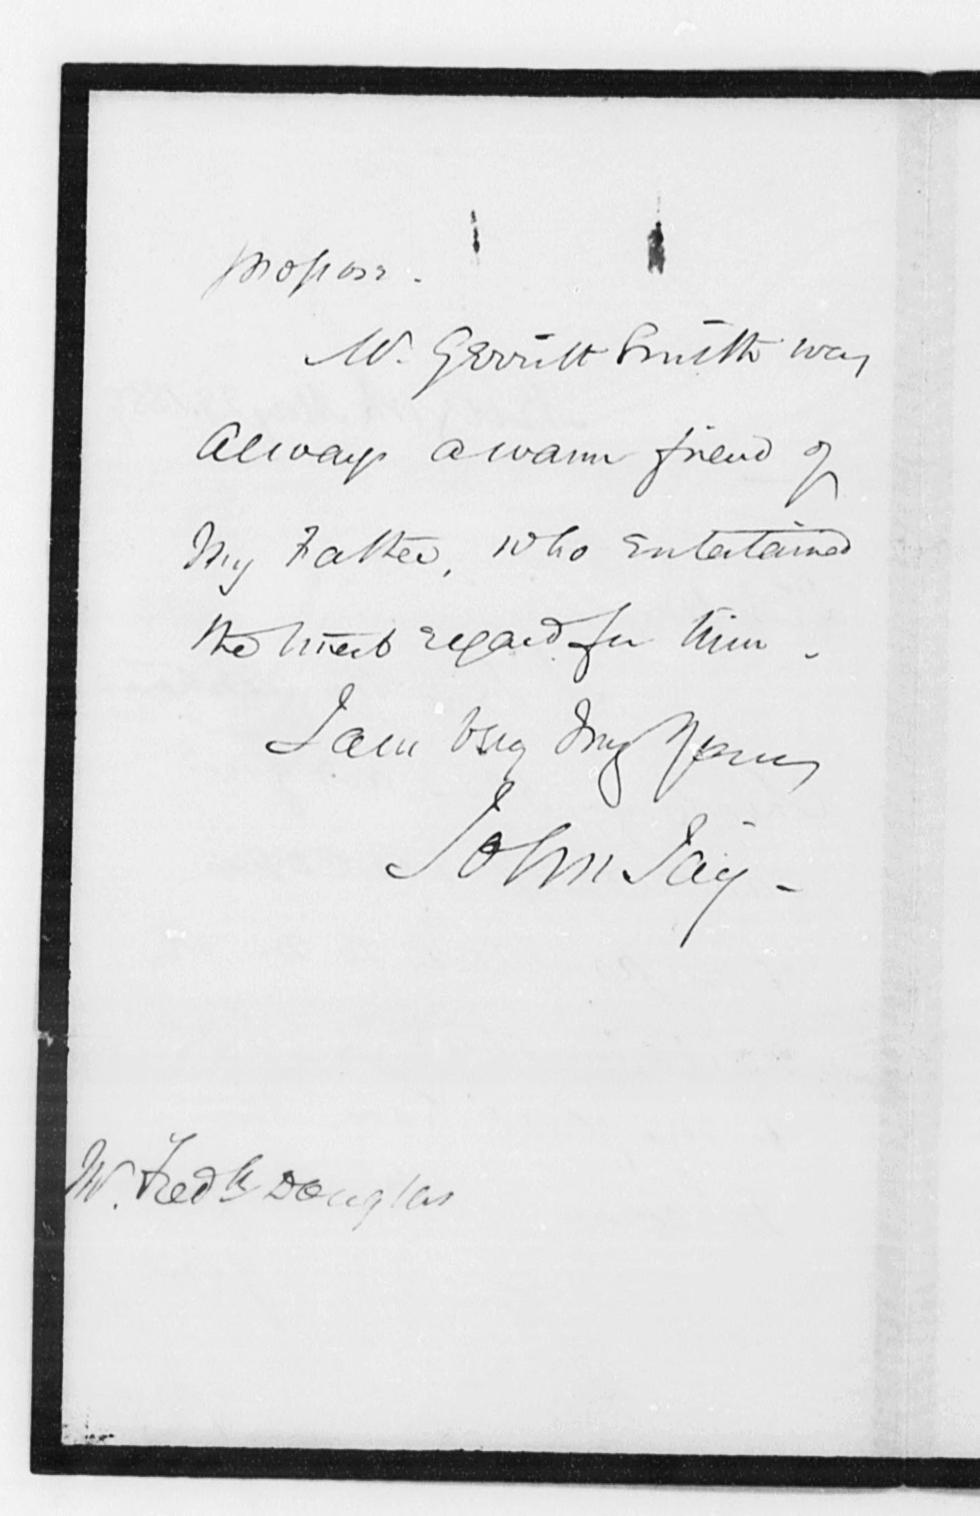 propose.
Mr. Gerritt Smith was
always a warm friend of
my Father, who entertained
the regard for him.
I am very truly Yours
John Jay -
Mr. Fredk Douglas